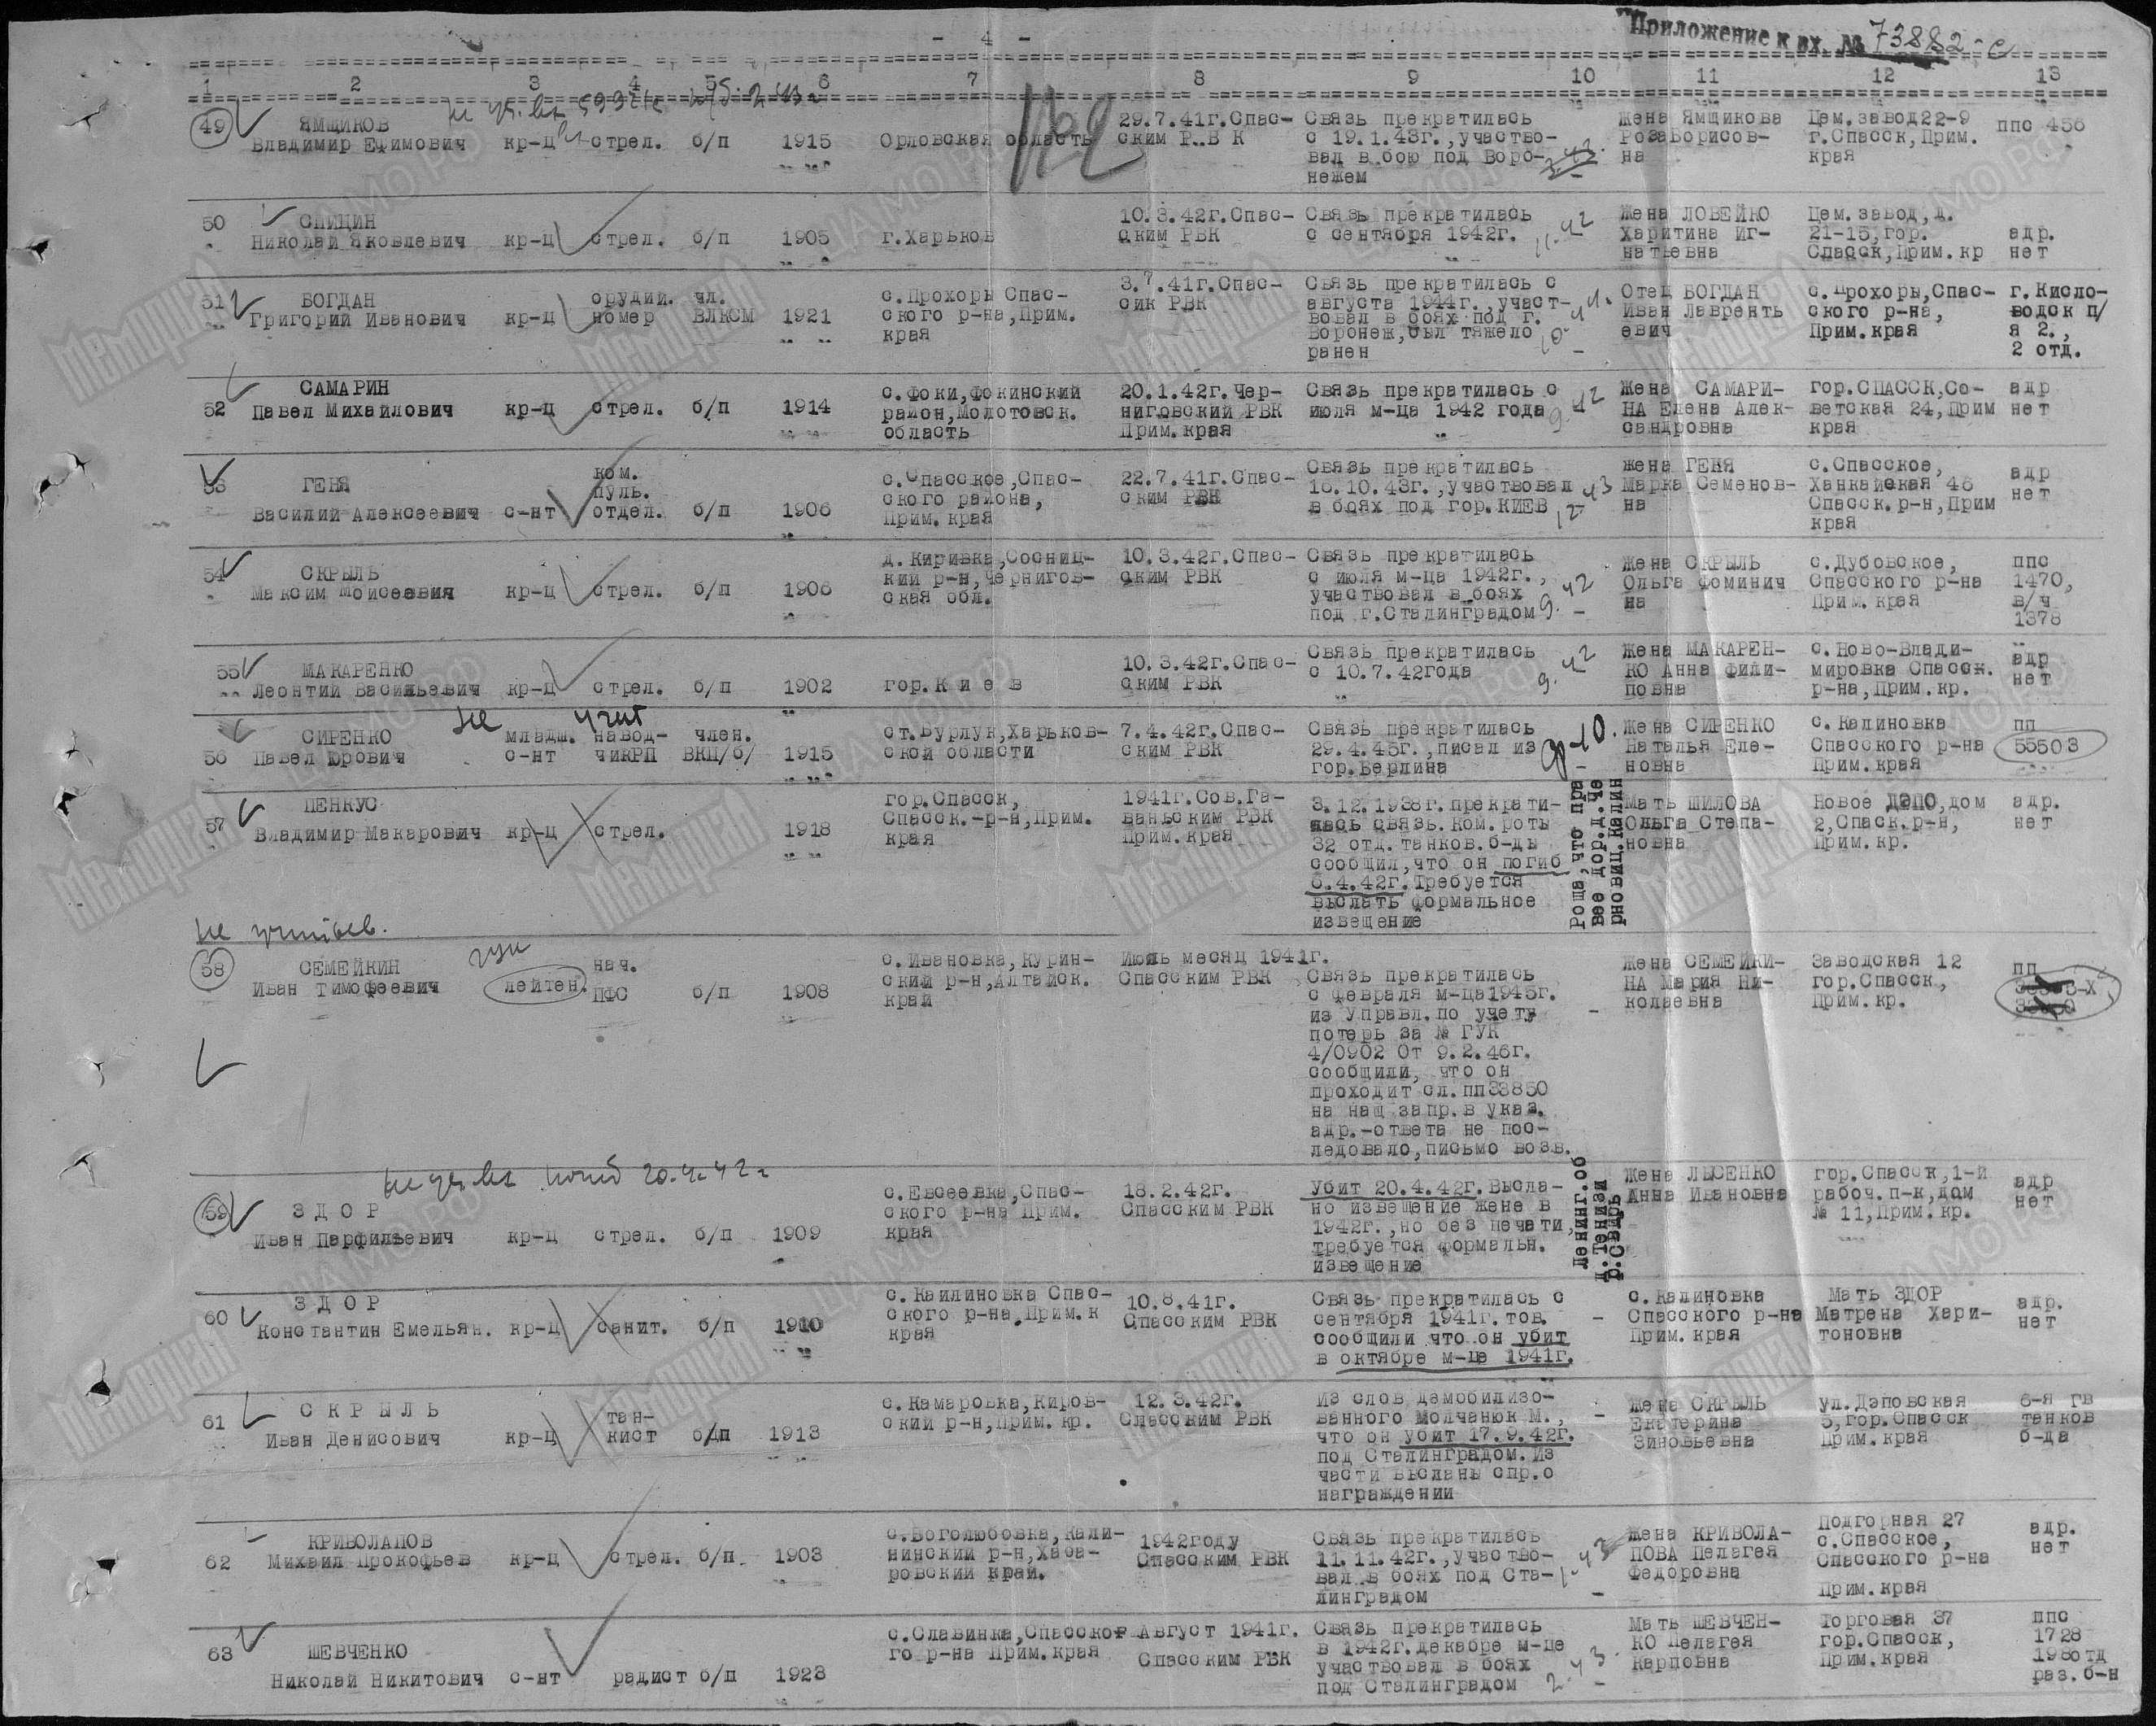 Приложение к вх. № 73882-с
- 4 -
1 2 3 4 5 6 7 8 9 10 11 12 13
49 ЯМЩИКОВ
Владимир Ефимович кр-ц стрел. б/п 1915 Орловская область
29.7.41г.Спас-
ским Р.В К
Связь прекратилась
с 19.1.43г.,участво-
вал в бою под Воро-
нежем
Жена Ямщикова
Роза Борисов-
на
Цем.завод 22-9
г.Спасск,Прим.
края
ппс 456
50 СПИЦИН
Николай Яковлевич кр-ц стрел. б/п 1905 г.Харьков
10.3.42г.Спас-
ским РВК
Связь прекратилась
с сентября 1942г.
11.42
Жена ЛОБЕЙКО
Харитина Иг-
натьевна
Цем.завод,д.
21-15,гор.
Спасск,Прим.кр
адр.
нет
51 БОГДАН
Григорий Иванович кр-ц
орудий.
номер
чл.
ВЛКСМ
1921
с.Прохоры Спас-
ского р-на,Прим.
края
3.7.41г.Спас-
ск РВК
Связь прекратилась с
августа 1944г.,участ-
вовал в боях под г.
Воронеж,был тяжело
ранен
Отец БОГДАН
Иван Лаврентъ
евич
с.Прохоры,Спас-
ского р-на,
Прим.края
г.Кисло-
водск п/
я 2.,
2 отд.
52 САМАРИН
Павел Михайлович кр-ц стрел. б/п 1914
с.Фоки,Фокинский
район,Молотовск.
область
20.1.42г.Чер-
ниговский РВК
Прим.края
Связь прекратилась с
июля м-ца 1942 года
9.42
Жена САМАРИ-
НА Елена Алек-
сандровна
гор.СПАССК,Со-
ветская 24,Прим
края
адр
нет
53 ГЕНЯ
Василий Алексеевич с-нт
ком.
пуль.
отдел.
б/п 1906
с.Спасское,Спас-
ского района,
Прим.края
22.7.41г.Спас-
ским РВК
Связь прекратилась
16.10.43г.,участвовал
в боях под гор.КИЕВ
12.43
жена ГЕНЯ
Марка Семенов-
на
с.Спасское,
Ханкайская 46
Спасск.р-н,Прим
края
адр
нет
54 СКРЫЛЬ
Максим Моисеевич кр-ц стрел. б/п 1906
д.Киривка,Сосниц-
кий р-н,Чернигов-
ская обл.
10.3.42г.Спас-
ским РВК
Связь прекратилась
с июля м-ца 1942г.,
участвовал в боях
под г.Сталинградом
9.42
Жена СКРЫЛЬ
Ольга Фоминич
на
с.Дубовское,
Спасского р-на
Прим.края
ппс
1470,
в/ч
1378
55 МАКАРЕНКО
Леонтий Васильевич кр-ц стрел. б/п 1902 гор.К и е в
10.3.42г.Спас-
ским РВК
Связь прекратилась
с 10.7.42года
9.42
Жена МАКАРЕН-
КО Анна Фили-
повна
с.Ново-Влади-
мировка Спасск.
р-на,Прим.кр.
адр
нет
не учит
56 СИРЕНКО
Павел Юрович
младш.
с-нт
навод-
чикРП
член.
ВКП/б/
1915
ст.Бурлук,Харьков-
ской области
7.4.42г.Спас-
ским РВК
Связь прекратилась
29.4.45г.,писал из
гор.Берлина
Жена СИРЕНКО
Наталья Еле-
новна
с.Калиновка
Спасского р-на
Прим.края
пп
55503
57 ПЕНКУС
Владимир Макарович кр-ц стрел. 1918
гор.Спасск,
Спасск.-р-н,Прим.
края
1941г.Сов.Га-
ваньским РВК
Прим.края
3.12.1938г.прекрати-
лась связь.Ком.роты
32 отд.танков.б-ды
сообщил,что он погиб
6.4.42г.Требуется
выслать формальное
извещение
Роща,что пра
вее дор.д.Че
рновиц.Калин
Мать ШИЛОВА
Ольга Степа-
новна
Новое ДЭПО,дом
2,Спасс.р-н,
Прим.кр.
адр.
нет
не учитыв.
58 СЕМЕЙКИН
Иван Тимофеевич
гук
лейтен.
нач.
ПФС
б/п 1908
с.Ивановка,Курин-
ский р-н,Алтайск.
край
Июль месяц 1941г.
Спасским РВК
Связь прекратилась
с февраля м-ца1945г.
из Управл.по учету
потерь за № ГУК
4/0902 от 9.2.46г.
сообщили, что он
проходит сл.пп33850
на наш запр.в указ.
адр.-ответа не пос-
ледовало,письмо возв.
Жена СЕМЕЙКИ-
НА Мария Ни-
колаевна
Заводская 12
гор.Спасск,
Прим.кр.
пп
погиб 20.4.42г
59 З Д О Р
Иван Парфильевич кр-ц стрел. б/п 1909
с.Евсеевка,Спас-
ского р-на Прим.
края
18.2.42г.
Спасским РВК
Убит 20.4.42г.Высла-
но извещение жене в
1942г.,но без печати,
требуется формальн.
извещение
Ленинг.об
д.Тенизи
р.Свирь
Жена ЛЫСЕНКО
Анна Ивановна
гор.Спасск,1-й
рабоч.п-к,дом
№ 11,Прим.кр.
адр
нет
60 З Д О Р
Константин Емельян. кр-ц санит. б/п 1910
с.Каилиновка Спас-
ского р-на,Прим.к
края
10.8.41г.
Спасским РВК
Связь прекратилась с
сентября 1941г.тов.
сообщили что он убит
в октябре м-це 1941г.
с.Калиновка
Спасского р-на
Прим.края
Мать ЗДОР
Матрена Хари-
тоновна
адр.
нет
61 С К Р Ы Л Ь
Иван Денисович кр-ц
тан-
кист
б/п 1913
с.Камаровка,Киров-
ский р-н,Прим.кр.
12.3.42г.
Спасским РВК
Из слов демобилизо-
ванного Молчанюк М.,
что он убит 17.9.42г.
под Сталинградом.Из
части высланы спр.о
награждении
Жена СКРЫЛЬ
Екатерина
Зиновьевна
ул.Дэповская
5,гор.Спасск
Прим.края
6-я гв
танков
б-да
62 КРИВОЛАПОВ
Михаил Прокофьев кр-ц стрел. б/п 1903
с.Боголюбовка,Кали-
нинский р-н,Хаба-
ровский край.
1942году
Спасским РВК
Связь прекратилась
11.11.42г.,участво-
вал в боях под Ста-
линградом
1.43
Жена КРИВОЛА-
ПОВА Пелагея
Федоровна
Подгорная 27
с.Спасское,
Спасского р-на
Прим.края
адр.
нет
63 ШЕВЧЕНКО
Николай Никитович с-нт радист б/п 1923
с.Славинка,Спасско
го р-на Прим.края
Август 1941г.
Спасским РВК
Связь прекратилась
в 1942г.декабре м-це
участвовал в боях
под Сталинградом
2.43.
Мать ШЕВЧЕН-
КО Пелагея
Карповна
Торговая 37
гор.Спасск,
Прим.края
ппс
1728
198отд
раз.б-н